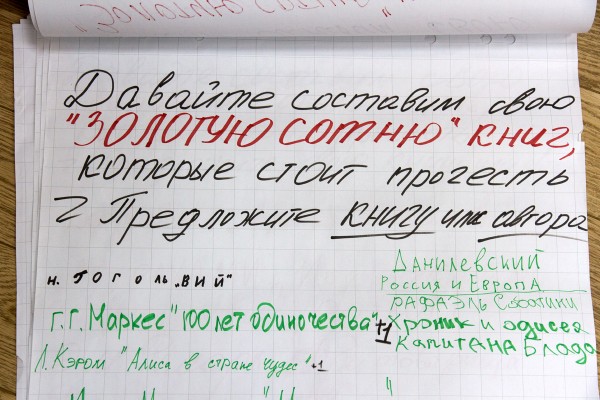 Давайте составим свою
"ЗОЛОТУЮ СОТНЮ" КНИГ,
которые стоит прочесть
Предложите книгу или автора
Н. ГОГОЛЬ „ВИЙ"
Г.Г. Маркес "100 лет одиночества" +1
Л. Кэрол "Алиса в стране чудес" +1
ДАНИЛЕВСКИЙ
РОССИЯ И ЕВРОПА
РАФАЭЛЬ Сабатини
Хроник и одисея
КАПИТАНА БЛАДА